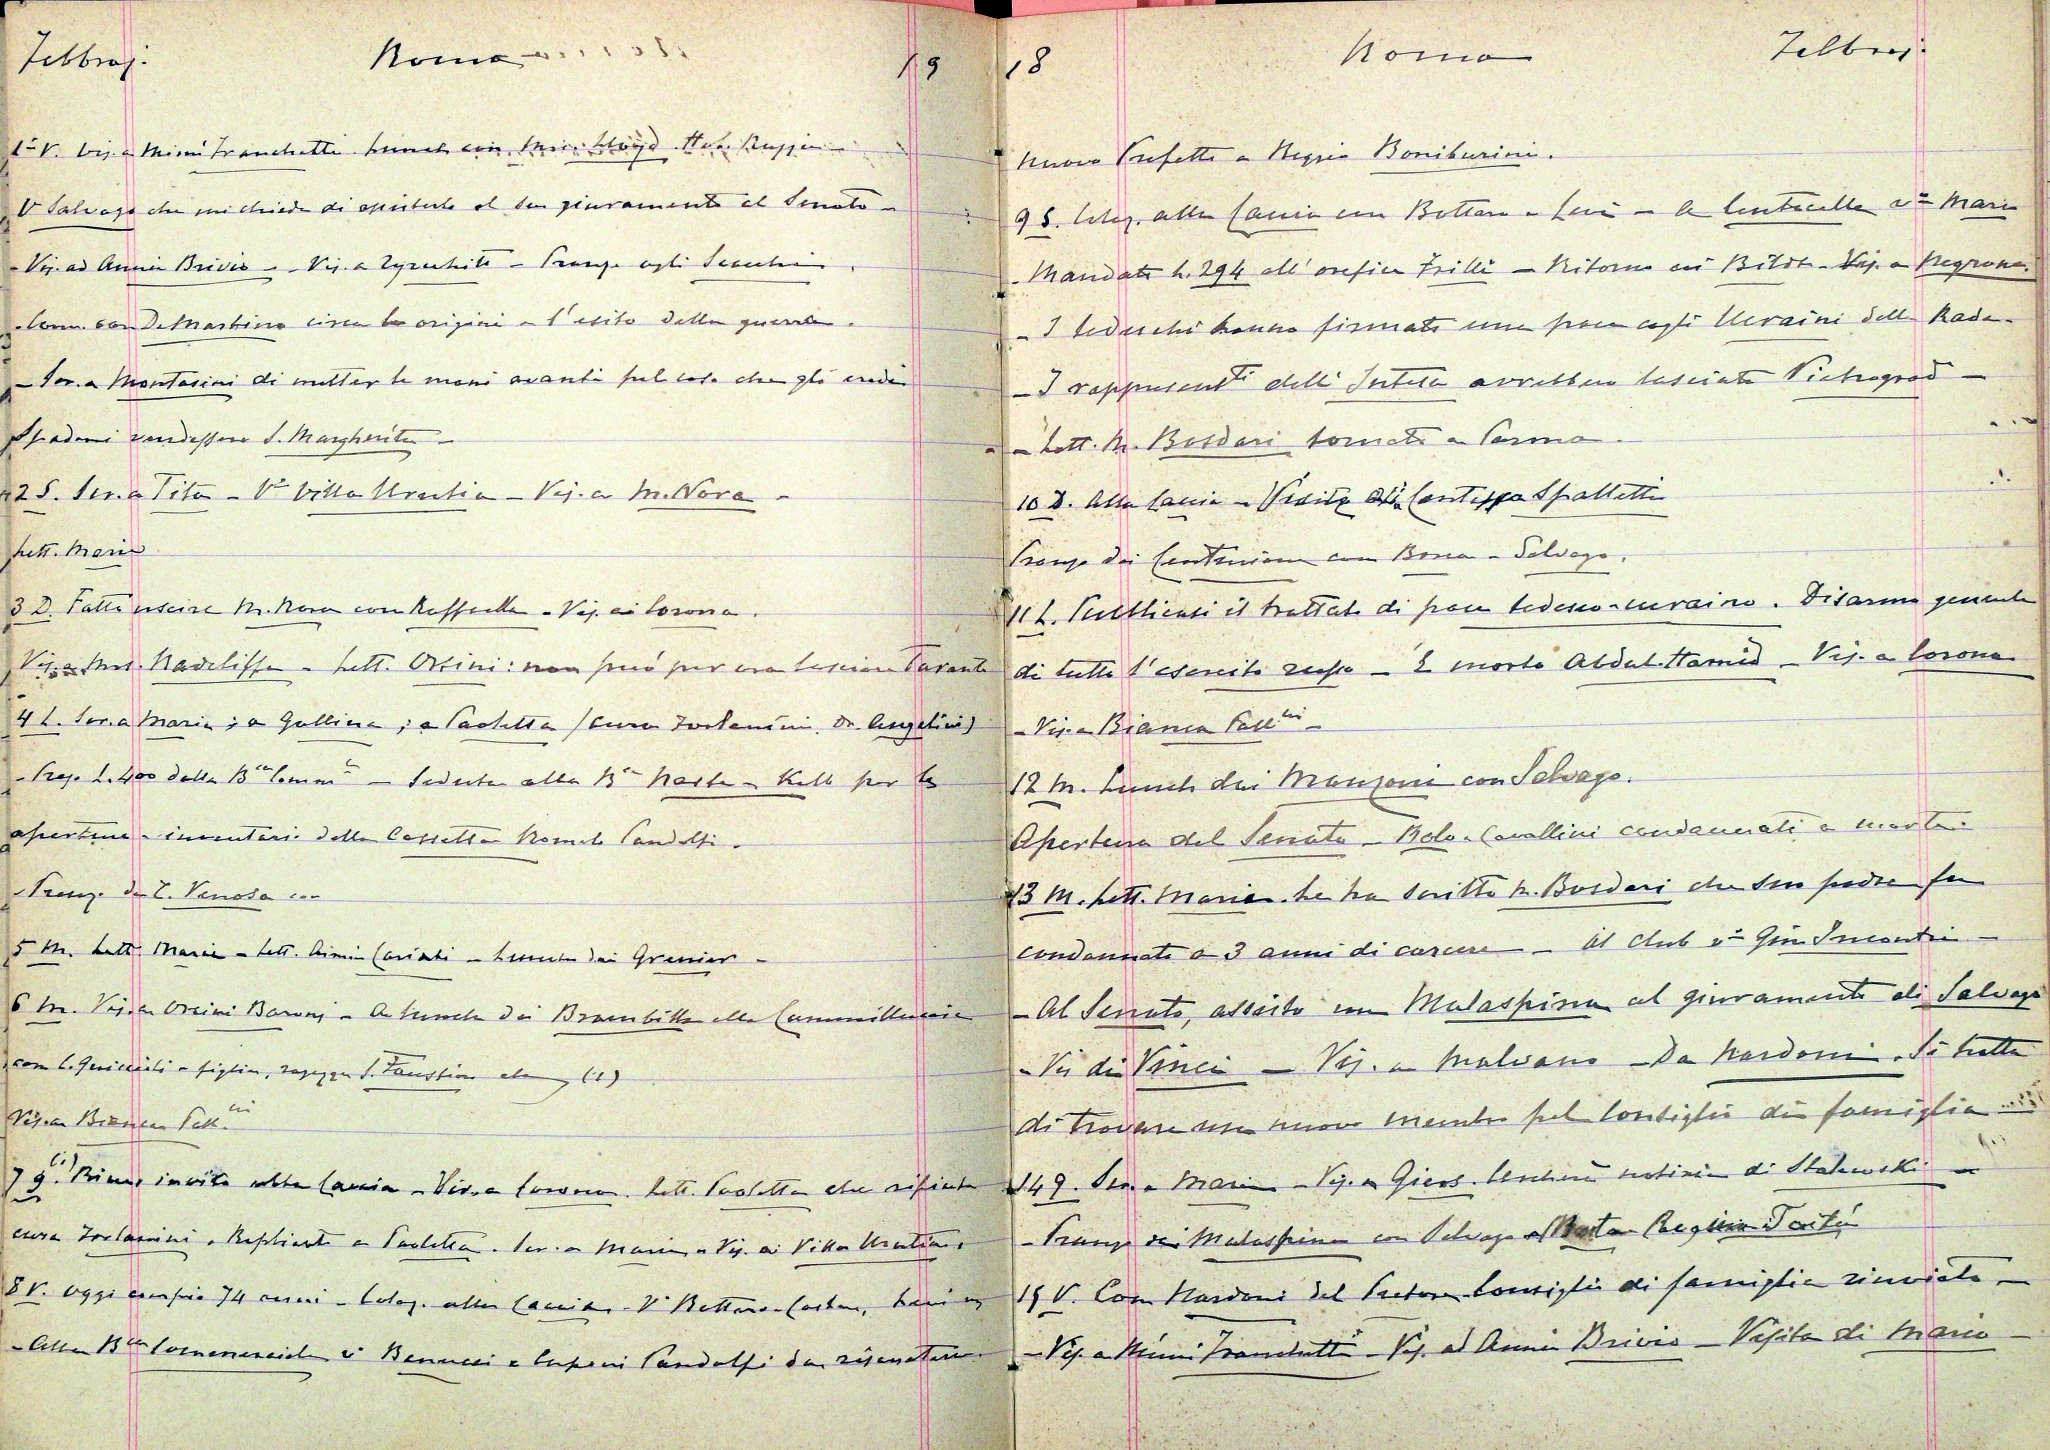 Febbraj. Roma 19
1° V. Vis. a Mimì Franchetti. Lunch con Mrs. Lloyd
V° Salvago che mi chiede di assisterlo al suo giuramento al Senato -
- Vis. ad Annie Brivio - Vis. a - Pranzo agli
- Conv. con De Martino circa le origini e l'esito della guerra.
- Scr. a Montasini di metter le mani avanti pel caso che gli eredi
Spadoni vendessero S. Margherita -
2 S. Scr. a Tita - V° Villa - Vis. a M. Nora -
Lett. Maria
3 D. Fatto uscire M. Nora con Raffaella - Vis. ai Corona.
Vis. a Mrs. Radcliffe - Lett. Orsini: non può per ora lasciare Taranto
4 L. Scr. a Maria; a Gallina; a Paoletta (cura Forlanini. Dr. Angelini)
- Prese L. 400 dalla B.ca Comm.le - Seduta alla B.ca Nast - Kolb per la
apertura e inventario della Cassetta Romolo Pandolfi.
- Pranzo da T. Venosa con
5 M. Lett. Maria - Lett. Aimin Cariati - Lunch dai Grenier -
6 M. Vis. a Orsini Baronj - A lunch dai Brambilla alla Cammilluccia
con C. e figlia, ragazza S. Faustino (1)
Vis. a Bianca Pall.ni
7 G. (1) Primo invito alla Caccia - Vis. a Corona. Lett. Paoletta che rifiuta
cura Forlanini. Replicato a Paoletta. Scr. a Maria - Vis. ai Villa
8 V. Oggi compio 74 anni - Colaz. alla Caccia - V° Bottaro-Costa, Levi
- Alla B.ca Commerciale v° Benucci e Pandolfi da
18 Roma Febbraj.
nuovo Prefetto a Reggio Boniburini.
9 S. Colaz. alla Caccia con Bottaro e Levi - A Centocelle v° Mario
- Mandato L. 294 all'orefice Frilli - Ritorno ai Bildt - Vis. a Negrone.
- I tedeschi hanno firmato una pace cogli Ucraini della Rada.
- I rappresent.ti dell'Intesa avrebbero lasciato Pietrograd -
- Lett. M. Bosdari tornato a Parma.
10 D. Alla Caccia - Visita alla Contessa Spalletti
Pranzo dai Centurione con Borea e Salvago.
11 L. Pubblicasi il trattato di pace tedesco-ucraino. Disarmo generale
di tutto l'esercito russo - È morto Abdul-Hamid - Vis. a Corona
- Vis. a Bianca Pall.ni -
12 M. Lunch dai Manzoni con Salvago.
Apertura del Senato - Bolo e Cavallini condannati a morte
13 M. Lett. Maria. Le ha scritto M. Bosdari che suo padre fu
condannato a 3 anni di carcere - Al club v° Gino Incontri -
- Al Senato, assisto con Malaspina al giuramento di Salvago
- Vis. di Vinci - Vis. a Malvano - Da Nardoni. Si tratta
di trovare un nuovo membro pel Consiglio di famiglia
14 G. Scr. a Maria - Vis. a Giers. Cercherà notizie di Stalewski -
- Pranzo dai Malaspina con Salvago
15 V. Con Nardoni dal Pretore. Consiglio di famiglia rinviato -
- Vis. a Mimì Franchetti - Vis. ad Annie Brivio - Visita di Mario -